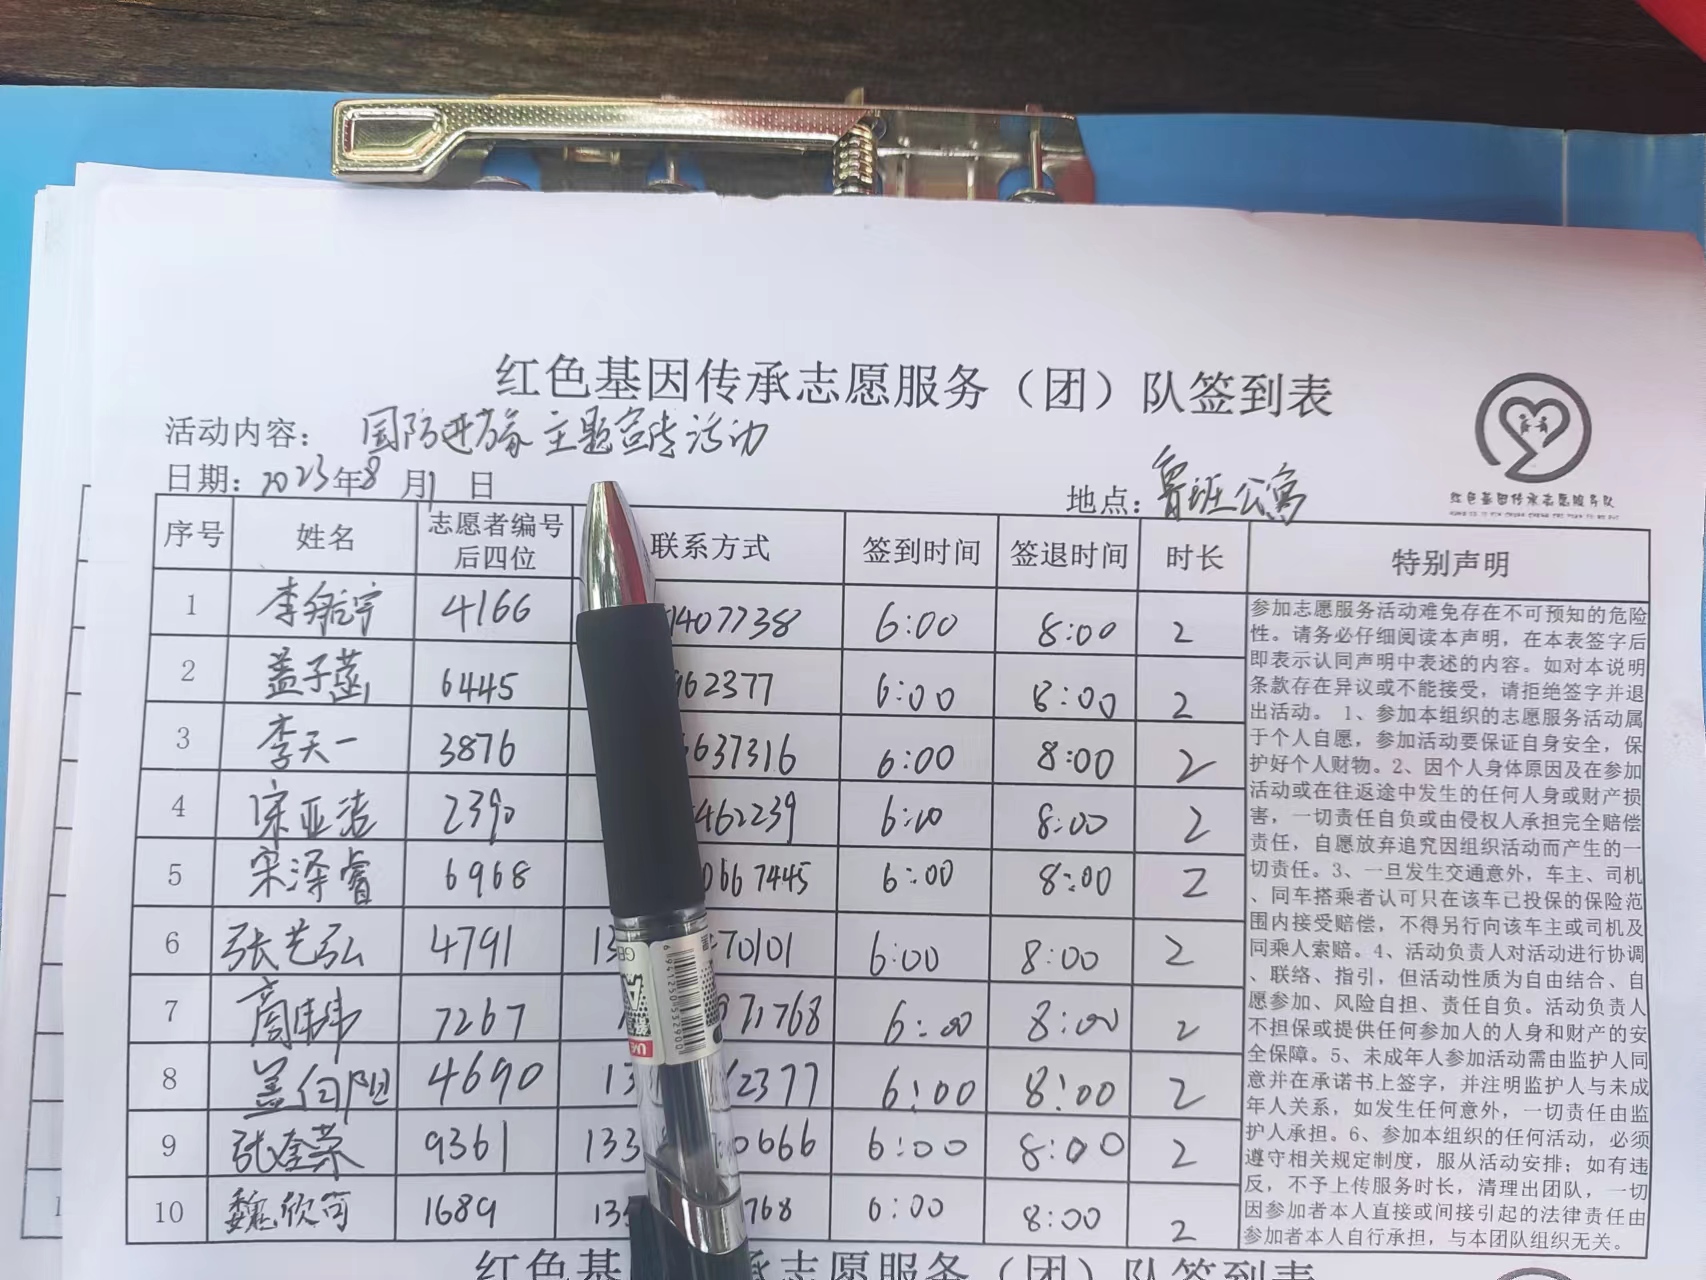 红色基因传承志愿服务（团）队签到表
活动内容： 国防进万家主题宣传活动
日期：2023年8月1日
地点：鲁班公寓
红色基因传承志愿服务队
序号 姓名 志愿者编号后四位 联系方式 签到时间 签退时间 时长 特别声明
1 李翰宇 4166 1407738 6:00 8:00 2
2 盖子菡 6445 962377 6:00 8:00 2
3 李天一 3876 6637316 6:00 8:00 2
4 宋亚洁 2390 462239 6:00 8:00 2
5 宋泽睿 6968 0667445 6:00 8:00 2
6 张艺弘 4791 13 70101 6:00 8:00 2
7 7267 71768 6:00 8:00 2
8 盖向阳 4690 13 2377 6:00 8:00 2
9 张奎荣 9361 133 0666 6:00 8:00 2
10 魏欣可 1689 13 768 6:00 8:00 2
参加志愿服务活动难免存在不可预知的危险
性。请务必仔细阅读本声明，在本表签字后
即表示认同声明中表述的内容。如对本说明
条款存在异议或不能接受，请拒绝签字并退
出活动。 1、参加本组织的志愿服务活动属
于个人自愿，参加活动要保证自身安全，保
护好个人财物。2、因个人身体原因及在参加
活动或在往返途中发生的任何人身或财产损
害，一切责任自负或由侵权人承担完全赔偿
责任，自愿放弃追究因组织活动而产生的一
切责任。3、一旦发生交通意外，车主、司机
、同车搭乘者认可只在该车已投保的保险范
围内接受赔偿，不得另行向该车主或司机及
同乘人索赔。4、活动负责人对活动进行协调
、联络、指引，但活动性质为自由结合、自
愿参加、风险自担、责任自负。活动负责人
不担保或提供任何参加人的人身和财产的安
全保障。5、未成年人参加活动需由监护人同
意并在承诺书上签字，并注明监护人与未成
年人关系，如发生任何意外，一切责任由监
护人承担。6、参加本组织的任何活动，必须
遵守相关规定制度，服从活动安排；如有违
反，不予上传服务时长，清理出团队，一切
因参加者本人直接或间接引起的法律责任由
参加者本人自行承担，与本团队组织无关。
6941230532900
红色基 承志愿服务（团）队签到表